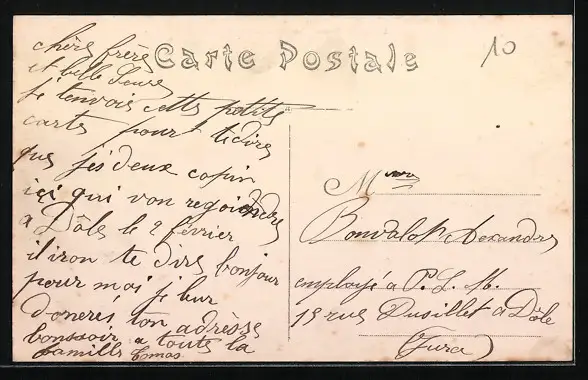 Carte Postale
10
chère frère
et belle Seure
je tenvois cette petite
carte pour te dire
que jés deux copin
içi qui von regoindre
a Dôle le 2 février
il iron te dire bonjour
pour moi je leur
donerés ton adrèsse
bonssoir a toute la
famille
Bonvalot Alexandre
employé a P. L. M.
19 rue Dusillet a Dôle
(Jura)